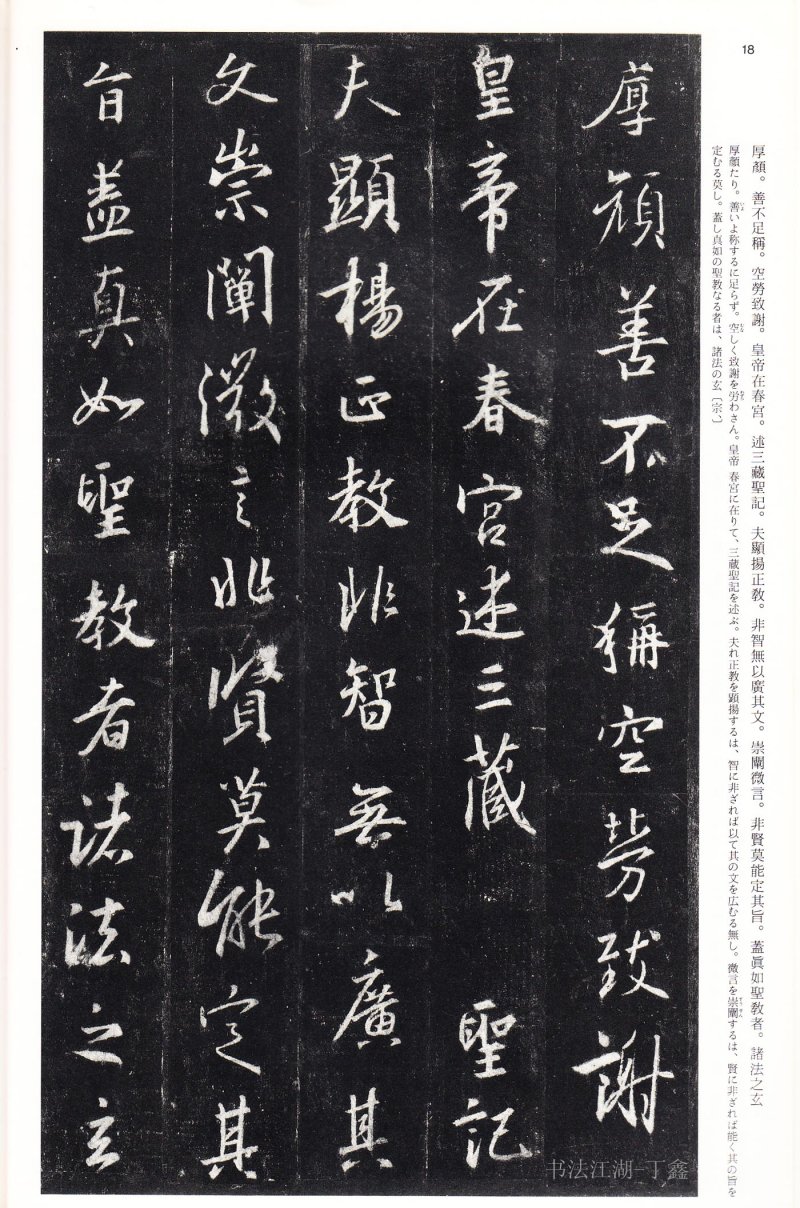 18
厚顏。善不足稱。空勞致謝。皇帝在春宮。述三藏聖記。夫顯揚正教。非智無以廣其文。崇闡微言。非賢莫能定其旨。蓋眞如聖教者。諸法之玄
厚顔たり。善いよ称するに足らず。空しく致謝を労わさん。皇帝 春宮に在りて、三蔵聖記を述ぶ。夫れ正教を顕揚するは、智に非ざれば以て其の文を広むる無し。微言を崇闡するは、賢に非ざれば能く其の旨を
定むる莫し。蓋し真如の聖教なる者は、諸法の玄〔宗、〕
厚顏善不足稱空勞致謝
皇帝在春宮述三藏聖記
夫顯楊正教非智無以廣其
文崇闡微言非賢莫能定其
旨蓋真如聖教者諸法之玄
书法江湖-丁鑫